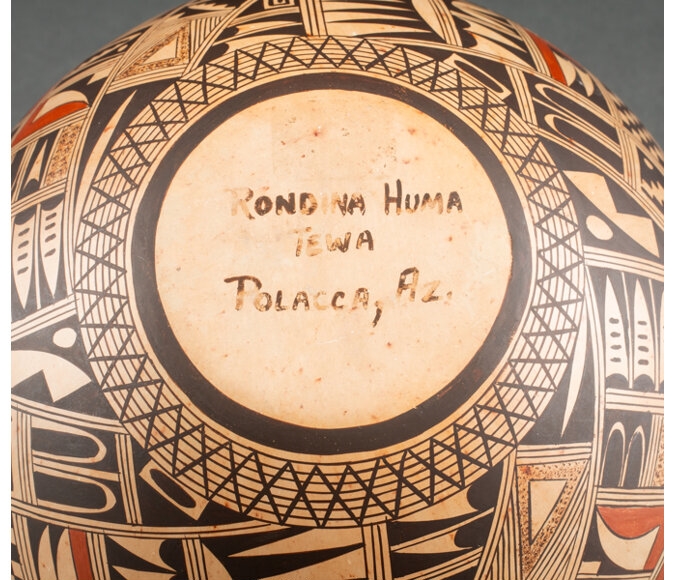 RONDINA HUMA
TEWA
POLACCA, AZ.